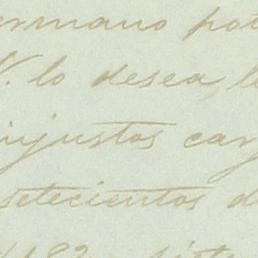 ermano pol
V. lo desea, lo
injustos carg
setecientos d